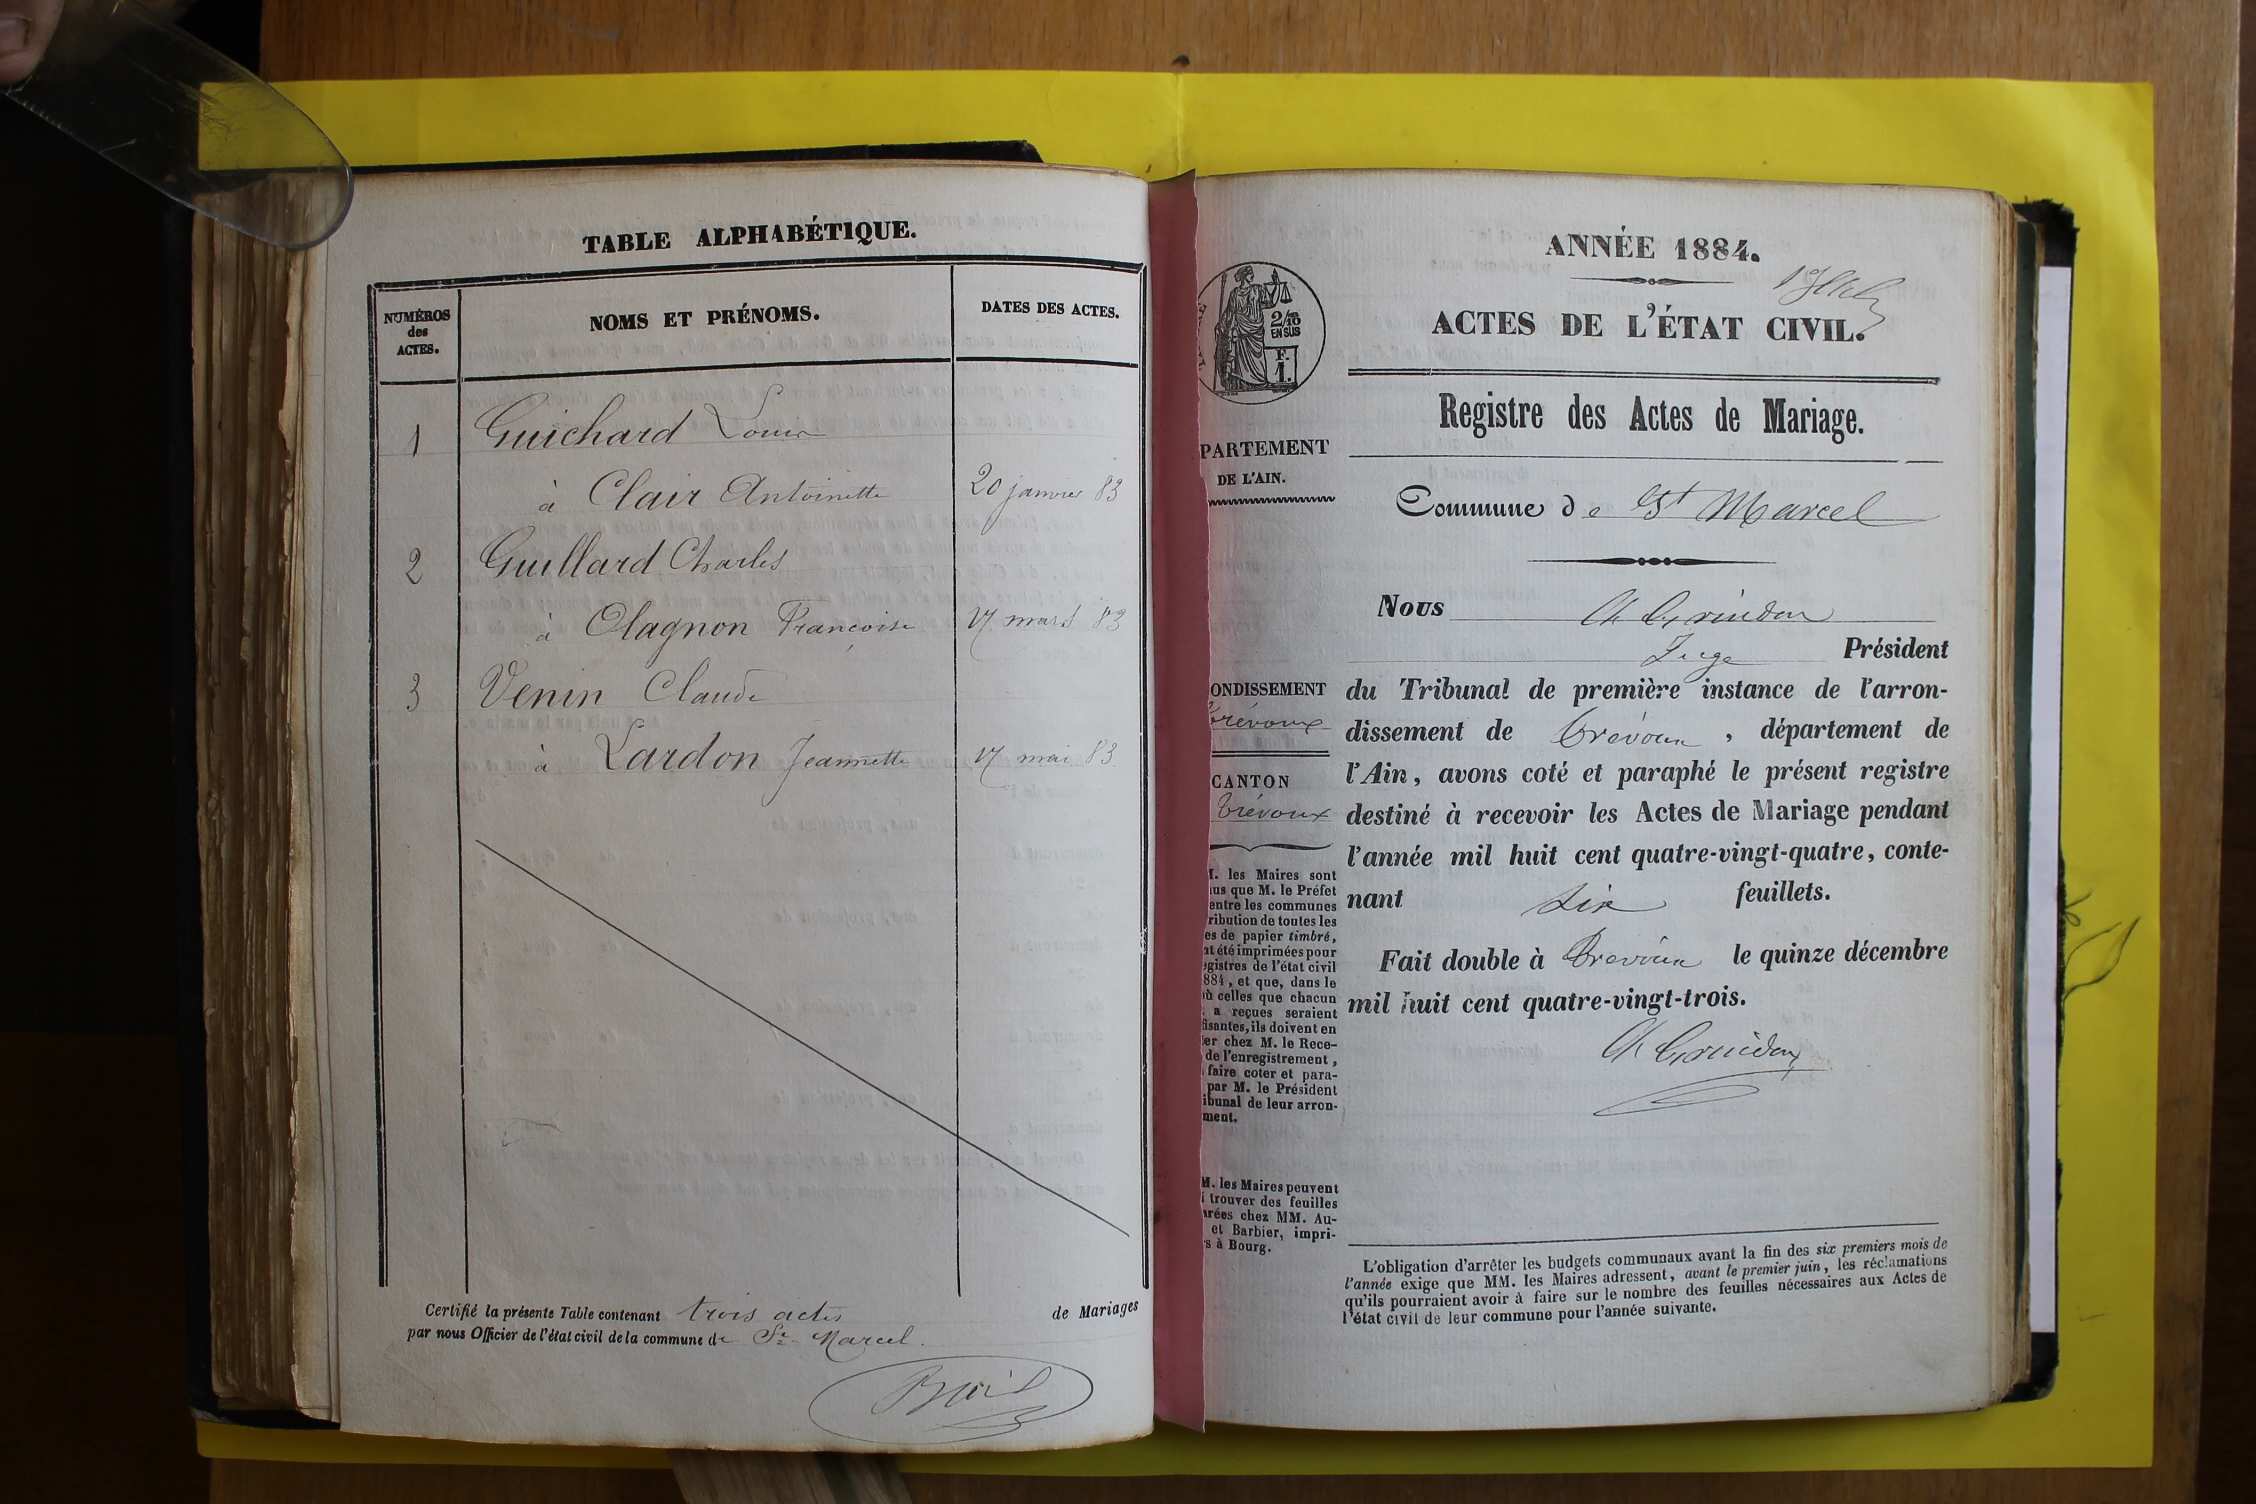 TABLE ALPHABÉTIQUE.
NUMÉROS
des
ACTES.
NOMS ET PRÉNOMS.
DATES DES ACTES.
1 Guichard Louis
à Clair Antoinette 20 janvier 83
2 Guillard Charles
à Clagnon Françoise 17 mars 83
3 Venin Claude
à Lardon Jeannette 17 mai 83
Certifié la présente Table contenant trois actes de Mariages
par nous Officier de l'état civil de la commune de St Marcel
ANNÉE 1884.
ACTES DE L'ÉTAT CIVIL.
2/10
EN SUS
F.
1.
Registre des Actes de Mariage.
PARTEMENT
DE L'AIN.
Commune de St Marcel
Nous Ch Grindon
Juge Président
du Tribunal de première instance de l'arron-
dissement de Trévoux, département de
l'Ain, avons coté et paraphé le présent registre
destiné à recevoir les Actes de Mariage pendant
l'année mil huit cent quatre-vingt-quatre, conte-
nant six feuillets.
Fait double à Trévoux le quinze décembre
mil huit cent quatre-vingt-trois.
Ch Grindon
ONDISSEMENT
Trévoux
CANTON
Trévoux
M. les Maires sont
us que M. le Préfet
entre les communes
ribution de toutes les
es de papier timbré,
nt été imprimées pour
egistres de l'état civil
884, et que, dans le
où celles que chacun
a reçues seraient
fisantes, ils doivent en
er chez M. le Rece-
de l'enregistrement,
faire coter et para-
par M. le Président
ibunal de leur arron-
ment.
M. les Maires peuvent
i trouver des feuilles
arées chez MM. Au-
et Barbier, impri-
s à Bourg.
L'obligation d'arrêter les budgets communaux avant la fin des six premiers mois de
l'année exige que MM. les Maires adressent, avant le premier juin, les réclamations
qu'ils pourraient avoir à faire sur le nombre des feuilles nécessaires aux Actes de
l'état civil de leur commune pour l'année suivante.